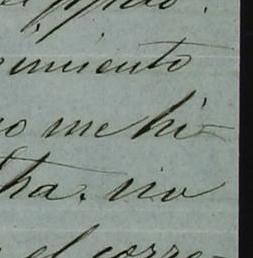 imiento
o me hi-
ha. no
el corre-